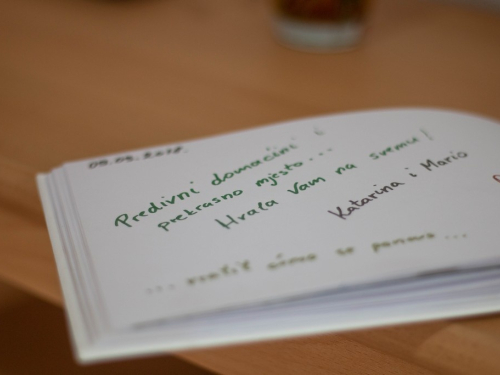 09.09.2018.
Predivni domaćini i
prekrasno mjesto...
Hvala Vam na svemu!
Katarina i Mario
... vratit ćemo se ponovo ...